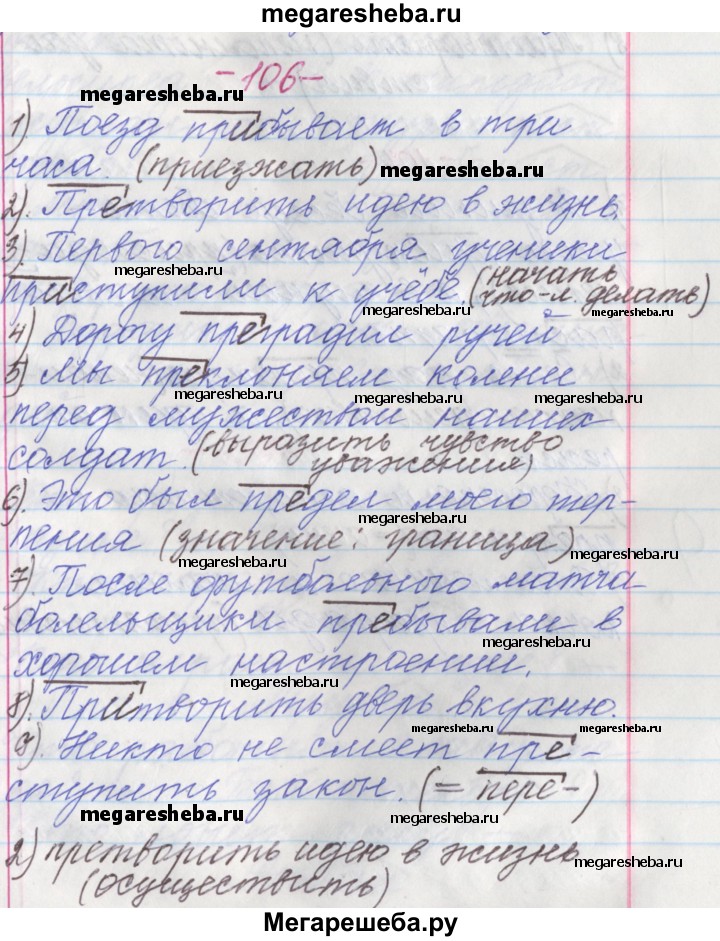 megaresheba.ru
-106-
megaresheba.ru
1) Поезд прибывает в три
часа. (приезжать) megaresheba.ru
2). Претворить идею в жизнь.
3). Первого сентября ученики
megaresheba.ru
приступили к учёбе. (начать
что-л. делать)
megaresheba.ru megaresheba.ru
4) Дорогу преградил ручей
5) Мы преклоняем колени
megaresheba.ru megaresheba.ru
перед мужеством наших
солдат. (выразить чувство
уважения)
6). Это был предел моего тер-
megaresheba.ru
пения (значение: граница)
megaresheba.ru megaresheba.ru
7). После футбольного матча
болельщики пребывали в
megaresheba.ru
хорошем настроении.
megaresheba.ru
8). Притворить дверь в кухню.
megaresheba.ru megaresheba.ru
9). Никто не смеет пре-
ступить закон. (= пере-)
megaresheba.ru megaresheba.ru
2) претворить идею в жизнь
megaresheba.ru
(осуществить)
Мегарешеба.ру